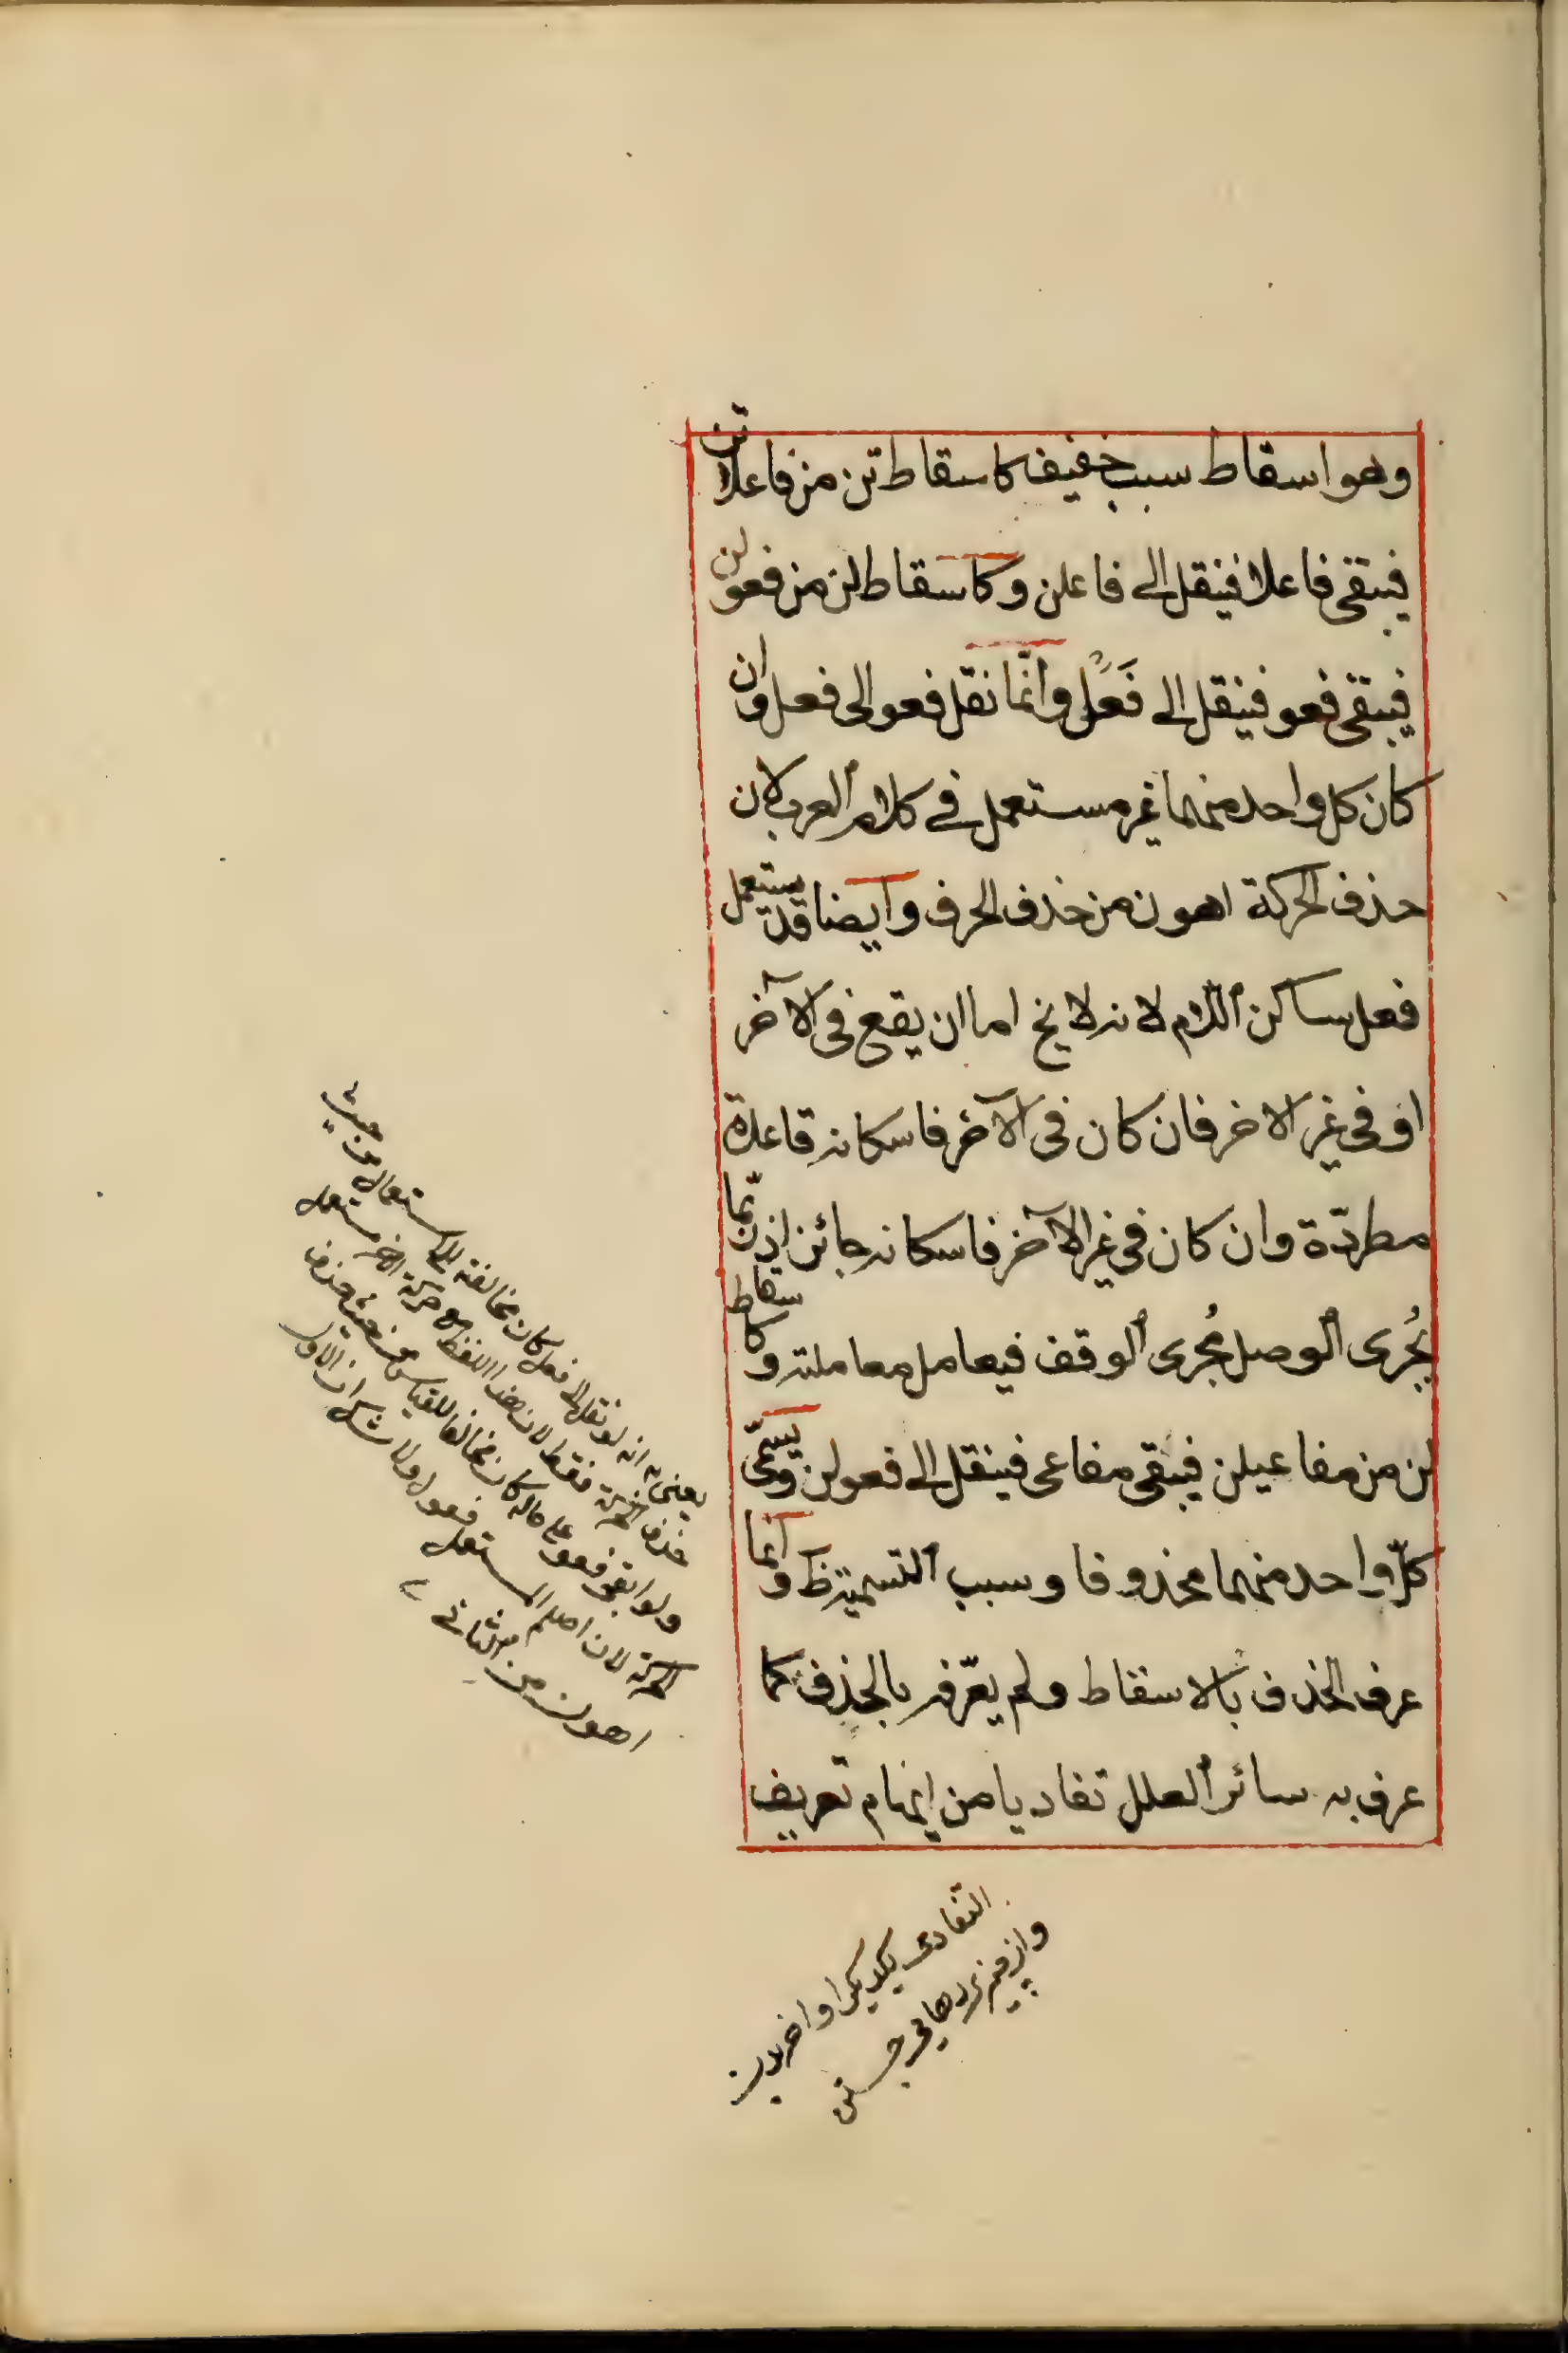 وهو اسقاط سبب خفيف كاسقاط تن من فاعلاتن
فيبقى فاعلا فينقل الى فاعلن وكاسقاط لن من فعولن
فيبقى فعو فينقل الى فَعَل وانّما نقل فعو الى فعل وان
كان كل واحد منهما غير مستعمل فى كلام العرب لان
حذف الحركة اهون من حذف الحرف وايضا قد يستعمل
فعل ساكن اللام لانه لا يخ اما ان يقع فى الآخر
او فى غير الاخر فان كان فى الآخر فاسكانه قاعدة
مطردّة وان كان فى غير الآخر فاسكانه جائز اذ ربّما
يُجرى الوصل مُجرى الوقف فيعامل معاملته وكاسقاط
لن من مفاعيلن فيبقى مفاعى فينقل الى فعولن ويسمّى
كلّ واحد منهما محذوفا وسبب التسمية ظ وانما
عرف الحذف بالاسقاط ولم يعّرفه بالحذف كما
عرف به سائر العلل تفاديا من ايهام تعريف
يعنى به انه لو نقل الى فعل كان مخالفته للاستعمال من حيث
حذف الحركة فقط لان هذا اللفظ مع حركة الاخر مستعمل
ولو ابقى فعو على حاله كان مخالفا للقياس من حيث حذف
الحركة لان اصله المستعمل فعو اولا شك ان الاول
اهون من الثانى
التفادى يكديكر او اخريدن
واز چيزى رهايى جستن